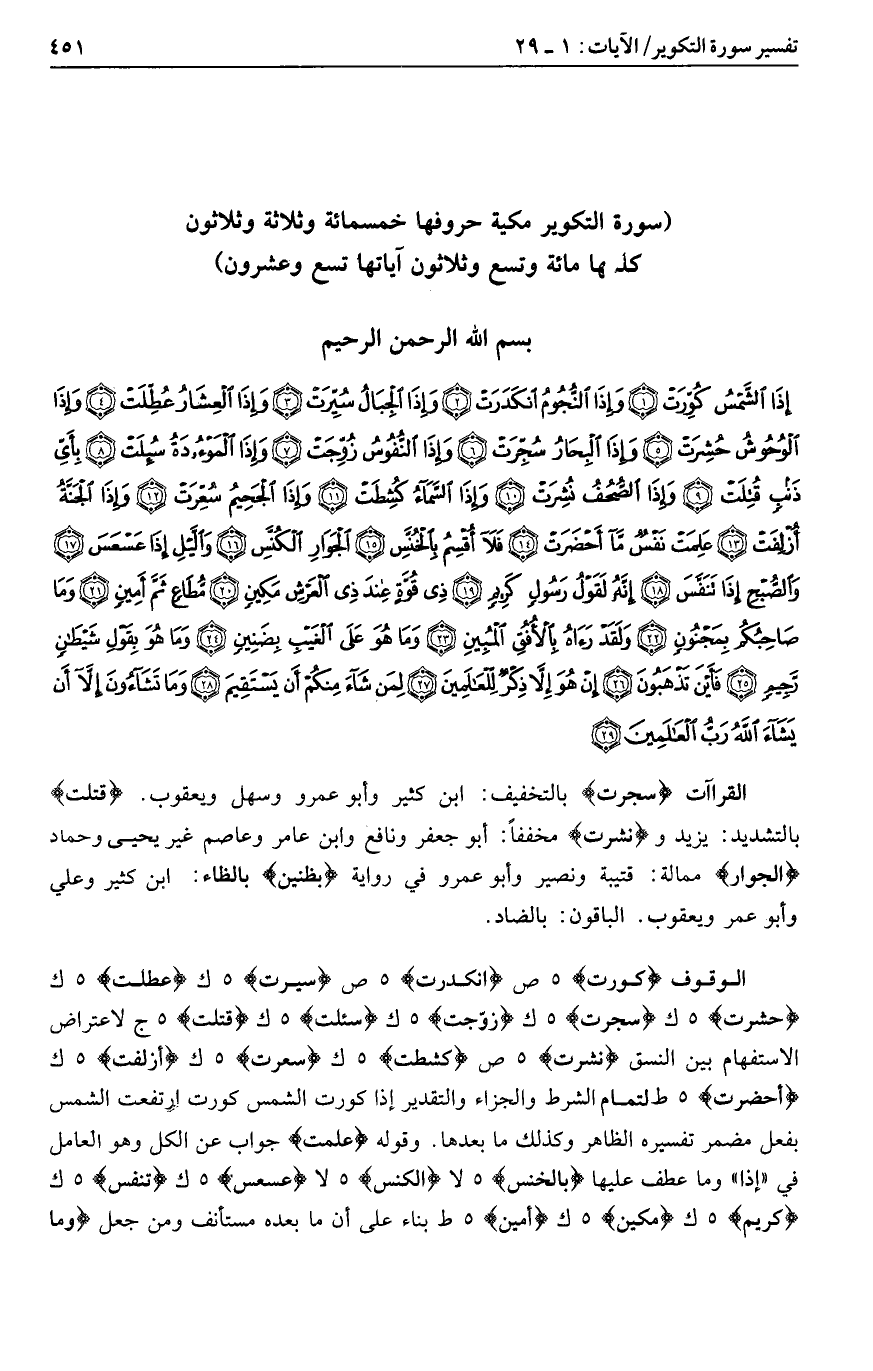 تفسير سورة التكوير/ الآيات: ١ - ٢٩ ٤٥١
(سورة التكوير مكية حروفها خمسمائة وثلاثة وثلاثون
ها مائة وتسع وثلاثون آياتها تسع وعشرون)
بسم الله الرحمن الرحيم
إِذَا ٱلشَّمْسُ كُوِّرَتْ ١ وَإِذَا ٱلنُّجُومُ ٱنكَدَرَتْ ٢ وَإِذَا ٱلْجِبَالُ سُيِّرَتْ ٣ وَإِذَا ٱلْعِشَارُ عُطِّلَتْ ٤ وَإِذَا
ٱلْوُحُوشُ حُشِرَتْ ٥ وَإِذَا ٱلْبِحَارُ سُجِّرَتْ ٦ وَإِذَا ٱلنُّفُوسُ زُوِّجَتْ ٧ وَإِذَا ٱلْمَوْءُۥدَةُ سُئِلَتْ ٨ بِأَىِّ
ذَنۢبٍ قُتِلَتْ ٩ وَإِذَا ٱلصُّحُفُ نُشِرَتْ ١٠ وَإِذَا ٱلسَّمَآءُ كُشِطَتْ ١١ وَإِذَا ٱلْجَحِيمُ سُعِّرَتْ ١٢ وَإِذَا ٱلْجَنَّةُ
أُزْلِفَتْ ١٣ عَلِمَتْ نَفْسٌ مَّآ أَحْضَرَتْ ١٤ فَلَآ أُقْسِمُ بِٱلْخُنَّسِ ١٥ ٱلْجَوَارِ ٱلْكُنَّسِ ١٦ وَٱلَّيْلِ إِذَا عَسْعَسَ ١٧
وَٱلصُّبْحِ إِذَا تَنَفَّسَ ١٨ إِنَّهُۥ لَقَوْلُ رَسُولٍ كَرِيمٍ ١٩ ذِى قُوَّةٍ عِندَ ذِى ٱلْعَرْشِ مَكِينٍ ٢٠ مُّطَاعٍ ثَمَّ أَمِينٍ ٢١ وَمَا
صَاحِبُكُم بِمَجْنُونٍ ٢٢ وَلَقَدْ رَءَاهُ بِٱلْأُفُقِ ٱلْمُبِينِ ٢٣ وَمَا هُوَ عَلَى ٱلْغَيْبِ بِضَنِينٍ ٢٤ وَمَا هُوَ بِقَوْلِ شَيْطَٰنٍ
رَّجِيمٍ ٢٥ فَأَيْنَ تَذْهَبُونَ ٢٦ إِنْ هُوَ إِلَّا ذِكْرٌ لِّلْعَٰلَمِينَ ٢٧ لِمَن شَآءَ مِنكُمْ أَن يَسْتَقِيمَ ٢٨ وَمَا تَشَآءُونَ إِلَّآ أَن
يَشَآءَ ٱللَّهُ رَبُّ ٱلْعَٰلَمِينَ ٢٩
القراآت ﴿سجرت﴾ بالتخفيف: ابن كثير وأبو عمرو وسهل ويعقوب. ﴿قتلت﴾
بالتشديد: يزيد و ﴿نشرت﴾ مخففاً: أبو جعفر ونافع وابن عامر وعاصم غير يحيى وحماد
﴿الجوار﴾ ممالة: قتيبة ونصير وأبو عمرو في رواية ﴿بظنين﴾ بالظاء: ابن كثير وعلي
وأبو عمر ويعقوب. الباقون: بالضاد.
الوقوف ﴿كورت﴾ ٥ ص ﴿انكدرت﴾ ٥ ص ﴿سيرت﴾ ٥ ك ﴿عطلت﴾ ٥ ك
﴿حشرت﴾ ٥ ك ﴿سجرت﴾ ٥ ك ﴿زوّجت﴾ ٥ ك ﴿سئلت﴾ ٥ ك ﴿قتلت﴾ ٥ ج لاعتراض
الاستفهام بين النسق ﴿نشرت﴾ ٥ ص ﴿كشطت﴾ ٥ ك ﴿سعرت﴾ ٥ ك ﴿أزلفت﴾ ٥ ك
﴿أحضرت﴾ ٥ ط لتمام الشرط والجزاء والتقدير إذا كورت الشمس كورت ارتفعت الشمس
بفعل مضمر تفسيره الظاهر وكذلك ما بعدها. وقوله ﴿علمت﴾ جواب عن الكل وهو العامل
في «إذا» وما عطف عليها ﴿بالخنس﴾ ٥ لا ﴿الكنس﴾ ٥ لا ﴿عسعس﴾ ٥ ك ﴿تنفس﴾ ٥ ك
﴿كريم﴾ ٥ ك ﴿مكين﴾ ٥ ك ﴿أمين﴾ ٥ ط بناء على أن ما بعده مستأنف ومن جعل ﴿وما